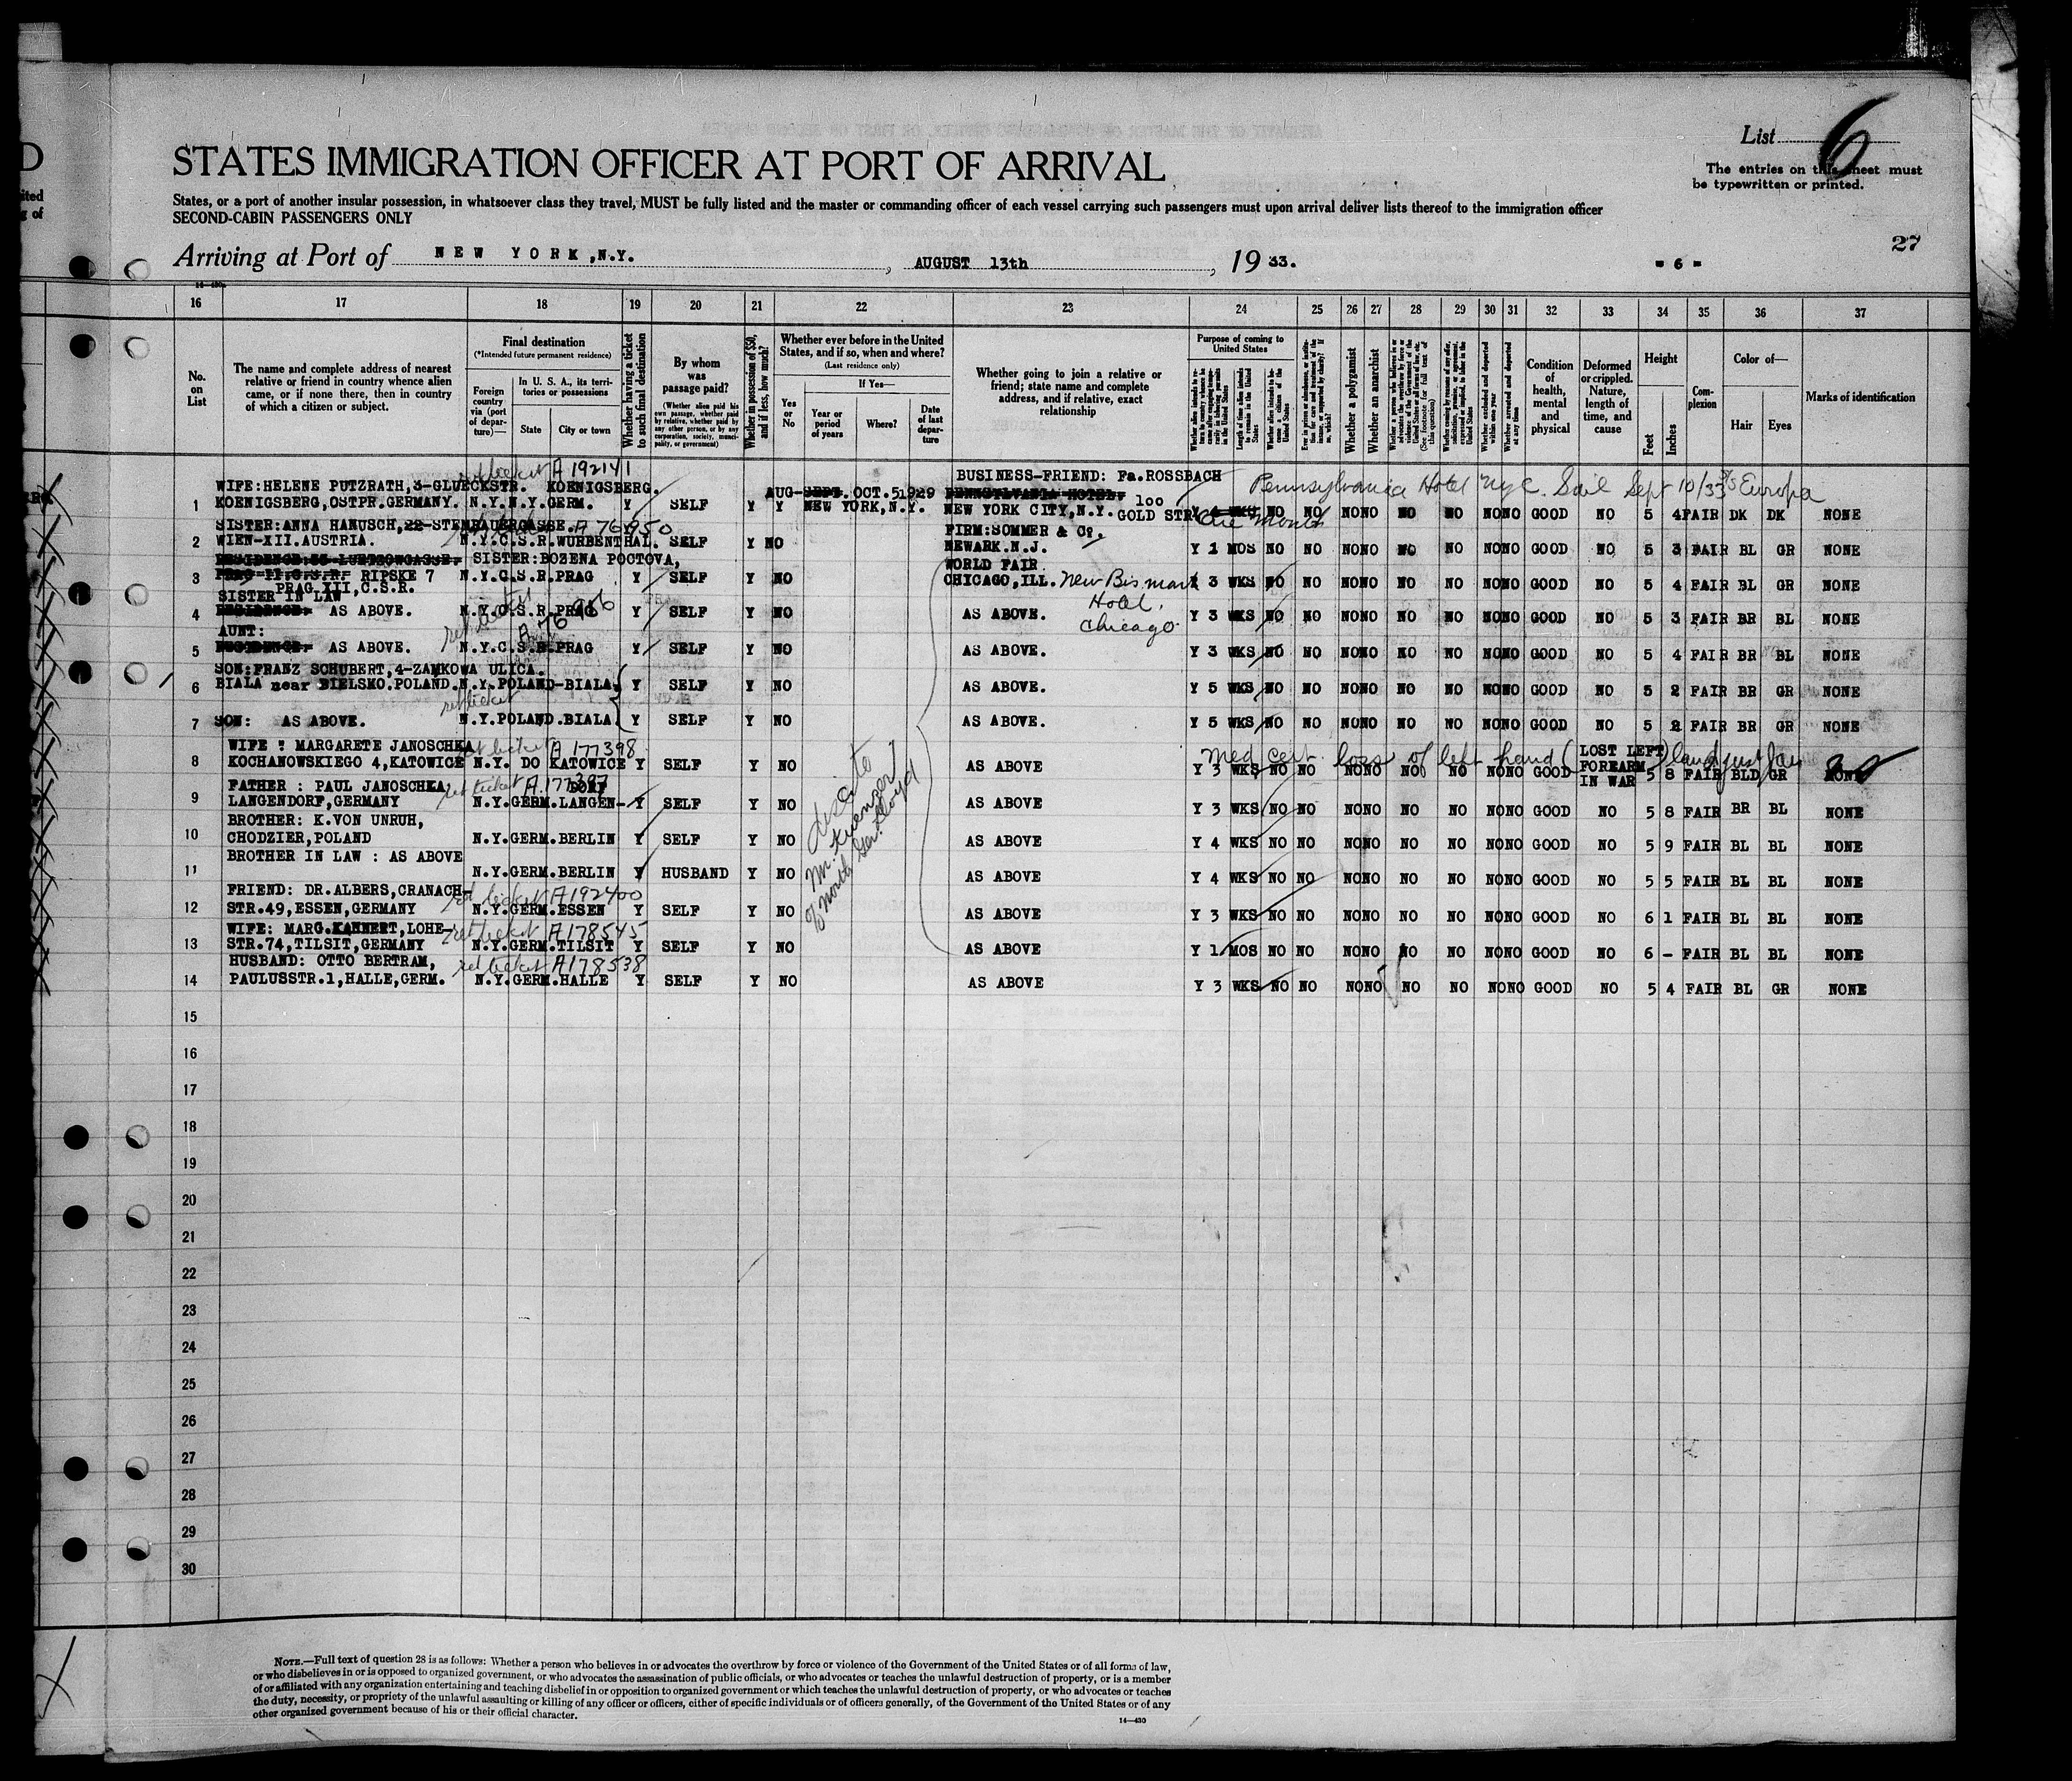 List 6
The entries on this sheet must
be typewritten or printed.
STATES IMMIGRATION OFFICER AT PORT OF ARRIVAL
States, or a port of another insular possession, in whatsoever class they travel, MUST be fully listed and the master or commanding officer of each vessel carrying such passengers must upon arrival deliver lists thereof to the immigration officer
SECOND-CABIN PASSENGERS ONLY
27
Arriving at Port of NEW YORK, N.Y., AUGUST 13th, 19 33. - 6 -
16 17 18 19 20 21 22 23 24 25 26 27 28 29 30 31 32 33 34 35 36 37
No. on List
The name and complete address of nearest relative or friend in country whence alien came, or if none there, then in country of which a citizen or subject.
Final destination
(*Intended future permanent residence)
Foreign country via (port of departure)—
In U. S. A., its territories or possessions
State
City or town
Whether having a ticket to such final destination
By whom was passage paid?
(Whether alien paid his own passage, whether paid by relative, whether paid by any other person, or by any corporation, society, municipality, or government)
Whether in possession of $50, and if less, how much?
Whether ever before in the United States, and if so, when and where?
(Last residence only)
Yes or No
If Yes—
Year or period of years
Where?
Date of last departure
Whether going to join a relative or friend; state name and complete address, and if relative, exact relationship
Purpose of coming to United States
Length of time alien intends to remain in the United States
Whether alien intends to become a citizen of the United States
Whether a polygamist
Whether an anarchist
Whether excluded and deported within one year
Whether arrested and deported at any time
Condition of health, mental and physical
Deformed or crippled. Nature, length of time, and cause
Height
Feet
Inches
Complexion
Color of—
Hair
Eyes
Marks of identification
A 192141
WIFE: HELENE PUTZRATH, 3-GLUECKSTR. KOENIGSBERG. BUSINESS-FRIEND: Fa. ROSSBACH
Pennsylvania Hotel NYC. Sail Sept 10/33 SS Europa
AUG-SEPT. OCT. 5 1929 PENNSYLVANIA HOTEL, 100
1 KOENIGSBERG, OSTPR. GERMANY. N.Y. N.Y. GERM. Y SELF Y Y NEW YORK, N.Y. NEW YORK CITY, N.Y. GOLD STR. One month NO NO NO NO NO NO NO NO GOOD NO 5 4 FAIR DK DK NONE
SISTER: ANNA HANUSCH, 22-STEINBAUERGASSE. A 76950 FIRM: SOMMER & Co.
2 WIEN-XII. AUSTRIA. N.Y. C.S.R. WURBENTHAL. SELF Y NO NEWARK. N.J. Y 2 MOS NO NO NO NO NO NO NO NO GOOD NO 5 3 FAIR BL GR NONE
SISTER: BOZENA POCTOVA, WORLD FAIR
3 RIPSKE 7 N.Y. C.S.R. PRAG Y SELF Y NO CHICAGO, ILL. New Bismark Y 3 WKS NO NO NO NO NO NO NO NO GOOD NO 5 4 FAIR BL GR NONE
PRAG XII, C.S.R.
Hotel,
SISTER IN LAW
4 RESIDENCE: AS ABOVE. N.Y. C.S.R. PRAG Y SELF Y NO AS ABOVE. Y 3 WKS NO NO NO NO NO NO NO NO GOOD NO 5 3 FAIR BR BL NONE
Chicago
AUNT:
5 RESIDENCE: AS ABOVE. N.Y. C.S.R. PRAG Y SELF Y NO AS ABOVE. Y 3 WKS NO NO NO NO NO NO NO NO GOOD NO 5 4 FAIR BR BL NONE
SON: FRANZ SCHUBERT, 4-ZAMKOWA ULICA.
6 BIALA near BIELSKO. POLAND. N.Y. POLAND-BIALA. Y SELF Y NO AS ABOVE. Y 5 WKS NO NO NO NO NO NO NO NO GOOD NO 5 2 FAIR BR GR NONE
ret ticket
7 SON: AS ABOVE. N.Y. POLAND. BIALA Y SELF Y NO AS ABOVE. Y 5 WKS NO NO NO NO NO NO NO NO GOOD NO 5 2 FAIR BR GR NONE
WIFE : MARGARETE JANOSCHKA ret ticket A 177398 med cert loss of left hand
LOST LEFT FOREARM IN WAR
8 KOCHANOWSKIEGO 4, KATOWICE N.Y. DO KATOWICE Y SELF Y NO AS ABOVE Y 3 WKS NO NO NO NO NO NO NO NO GOOD 5 8 FAIR BLD GR NONE
FATHER : PAUL JANOSCHKA, ret ticket A 177397 DORF
9 LANGENDORF, GERMANY N.Y. GERM. LANGEN- Y SELF Y NO AS ABOVE Y 3 WKS NO NO NO NO NO NO NO NO GOOD NO 5 8 FAIR BR BL NONE
BROTHER: K. VON UNRUH,
10 CHODZIER, POLAND N.Y. GERM. BERLIN Y SELF Y NO AS ABOVE Y 4 WKS NO NO NO NO NO NO NO NO GOOD NO 5 9 FAIR BL BL NONE
BROTHER IN LAW : AS ABOVE
11 N.Y. GERM. BERLIN Y HUSBAND Y NO AS ABOVE Y 4 WKS NO NO NO NO NO NO NO NO GOOD NO 5 5 FAIR BL BL NONE
of North Ger. Lloyd
FRIEND: DR. ALBERS, CRANACH- ret ticket A 192400
12 STR. 49, ESSEN, GERMANY N.Y. GERM. ESSEN Y SELF Y NO AS ABOVE Y 3 WKS NO NO NO NO NO NO NO NO GOOD NO 6 1 FAIR BL BL NONE
WIFE: MARG. KANNERT, LOHE- ret ticket A 178545
13 STR. 74, TILSIT, GERMANY N.Y. GERM. TILSIT Y SELF Y NO AS ABOVE Y 1 MOS NO NO NO NO NO NO NO NO GOOD NO 6 - FAIR BL BL NONE
HUSBAND: OTTO BERTRAM, ret ticket A 178538
14 PAULUSSTR. 1, HALLE, GERM. N.Y. GERM. HALLE Y SELF Y NO AS ABOVE Y 3 WKS NO NO NO NO NO NO NO NO GOOD NO 5 4 FAIR BL GR NONE
15
16
17
18
19
20
21
22
23
24
25
26
27
28
29
30
NOTE.—Full text of question 28 is as follows: Whether a person who believes in or advocates the overthrow by force or violence of the Government of the United States or of all forms of law,
or who disbelieves in or is opposed to organized government, or who advocates the assassination of public officials, or who advocates or teaches the unlawful destruction of property, or is a member
of or affiliated with any organization entertaining and teaching disbelief in or opposition to organized government or which teaches the unlawful destruction of property, or who advocates or teaches
the duty, necessity, or propriety of the unlawful assaulting or killing of any officer or officers, either of specific individuals or of officers generally, of the Government of the United States or of any
other organized government because of his or their official character.
14—430